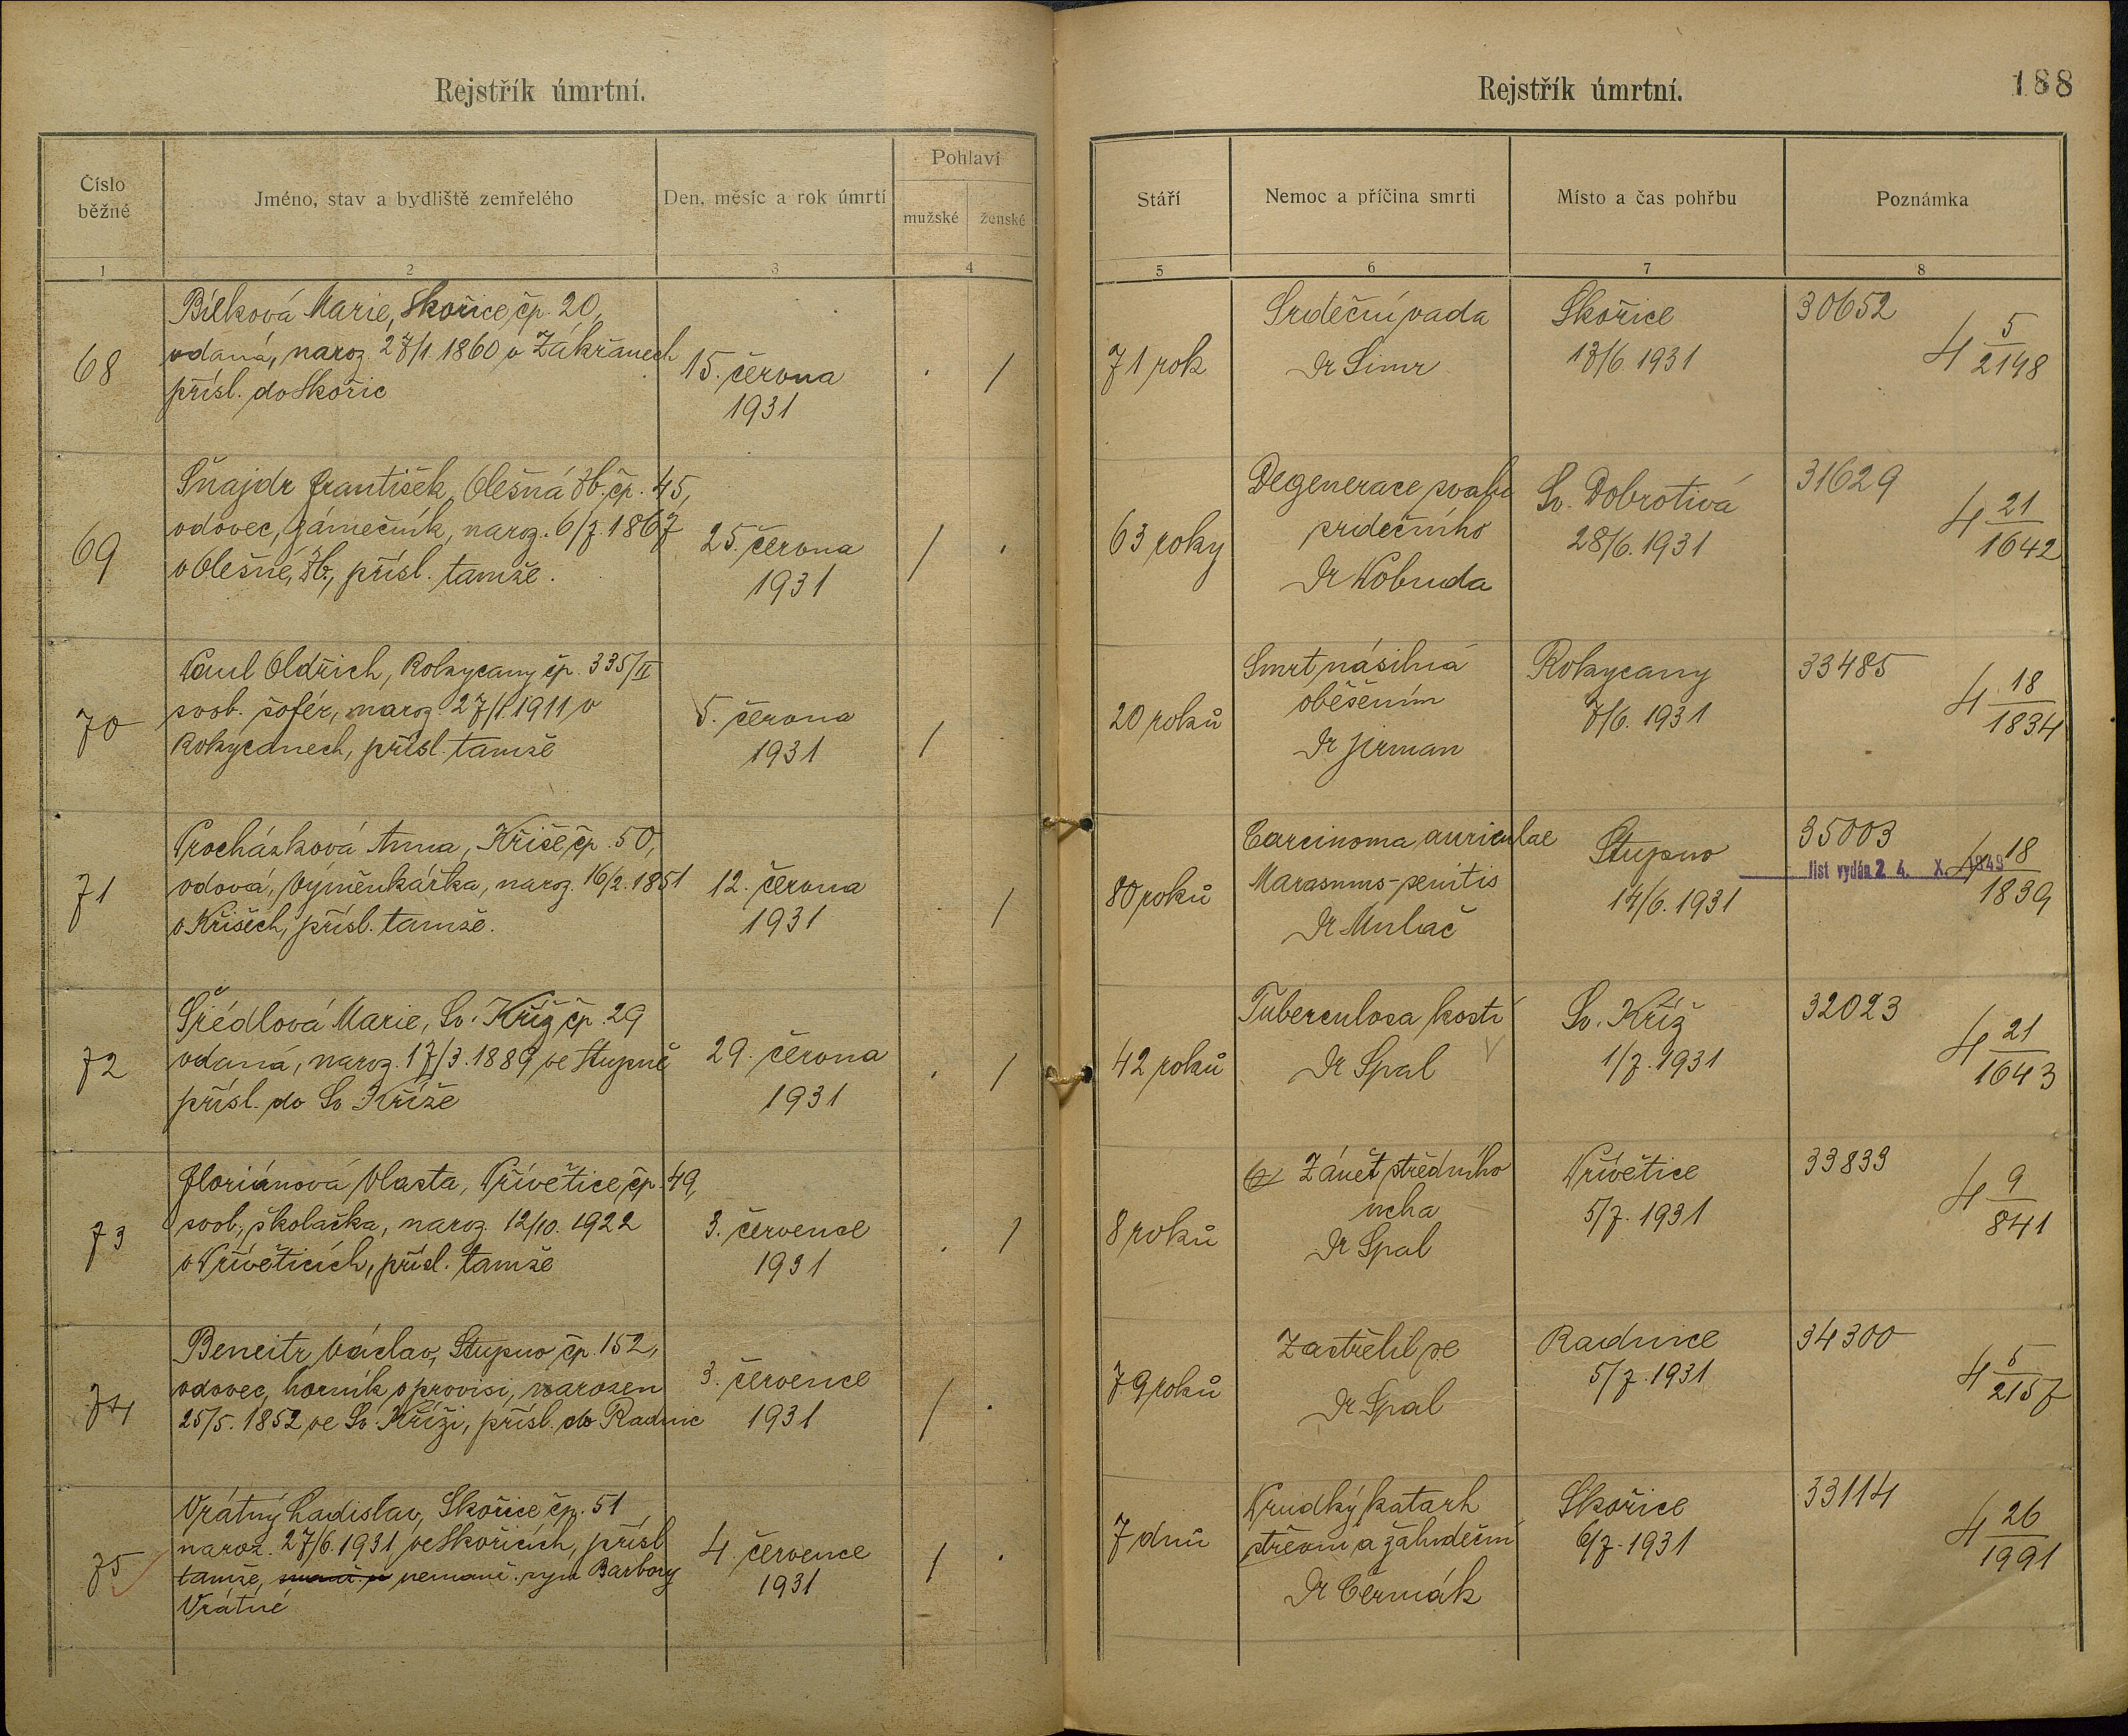 Rejstřík úmrtní.
Číslo běžné
Jméno, stav a bydliště zemřelého
Den, měsíc a rok úmrtí
Pohlaví
mužské
ženské
1
2
3
4
68
Bílková Marie, Skořice čp. 20,
vdaná, naroz. 27/1 1860 v Zákřanech
přísl. do Skořic
15. června
1931
69
Šnajdr František, Olešná Zb. čp. 45,
vdovec, zámečník, naroz. 6/7. 1867
v Olešné, Zb., přísl. tamže.
25. června
1931
70
Paul Oldřich, Rokycany čp. 335/II
svob. šofér, naroz. 27/1. 1911 v
Rokycanech, přísl. tamže
5. června
1931
71
Procházková Anna, Kříše čp. 50,
vdova, výměnkářka, naroz. 16/2. 1851
v Kříších, přísl. tamže.
12. června
1931
72
Marie, Sv. Kříž čp. 29
vdaná, naroz. 17/3. 1889 ve Stupně
přísl. do Sv. Kříže
29. června
1931
73
Floriánová Vlasta, Přívětice čp. 49,
svob., školačka, naroz. 12/10. 1922
v Příveticích, přísl. tamže
3. července
1931
74
Beneitr Václav, Stupno čp. 152,
vdovec, horník v provisi, narozen
25/5. 1852 ve Sv. Kříži, přísl. do Radnic
3. července
1931
75
Vrátný Ladislav, Skořice čp. 51,
naroz. 27/6. 1931 ve Skořicích, přísl.
tamže, nemanž. syn Barbory
Vrátné
4. července
1931
Rejstřík úmrtní.
188
Stáří
Nemoc a příčina smrti
Místo a čas pohřbu
Poznámka
5
6
7
8
71 rok
Srdeční vada
Dr Šimr
Skořice
17/6. 1931
30652
4 5/2148
63 roky
Degenerace svalu
srdečního
Dr Wobruda
Sv. Dobrotivá
28/6. 1931
31629
4 21/1642
20 roků
Smrt násilná
oběšením
Dr Jirman
Rokycany
7/6. 1931
33485
4 18/1834
80 roků
Carcinoma auriculae
Marasmus senilis
Dr Mulač
Stupno
14/6. 1931
35003
list vydán 2 4. X. 1949
4 18/1839
42 roků
Tuberculosa kostí
Dr Špal
Sv. Kříž
1/7. 1931
32023
4 21/1643
8 roků
Zánět středního
ucha
Dr Špal
Přívětice
5/7. 1931
33833
4 9/841
79 roků
Zastřelil se
Dr Špal
Radnice
5/7. 1931
34300
4 5/2157
7 dnů
Prudký katarh
střevní a žaludeční
Dr Čermák
Skořice
6/7. 1931
33114
4 26/1991